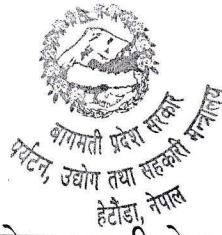 बागमती प्रदेश सरकार
पर्यटन, उद्योग तथा सहकारी मन्त्रालय
हेटौंडा, नेपाल